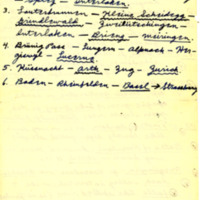 Interlaken.
3. Lauterbrunnen – Kleine Scheidegg –
Grindelwald – Zweilütschinen –
Interlaken – Brienz – Meiringen.
4. Brünig Pass – Lungern – Alpnach – Her-
giswyl – Lucerne.
5. Küssnacht – Arth – Zug – Zurich
6. Baden – Rheinfelden – Basel → Strassburg